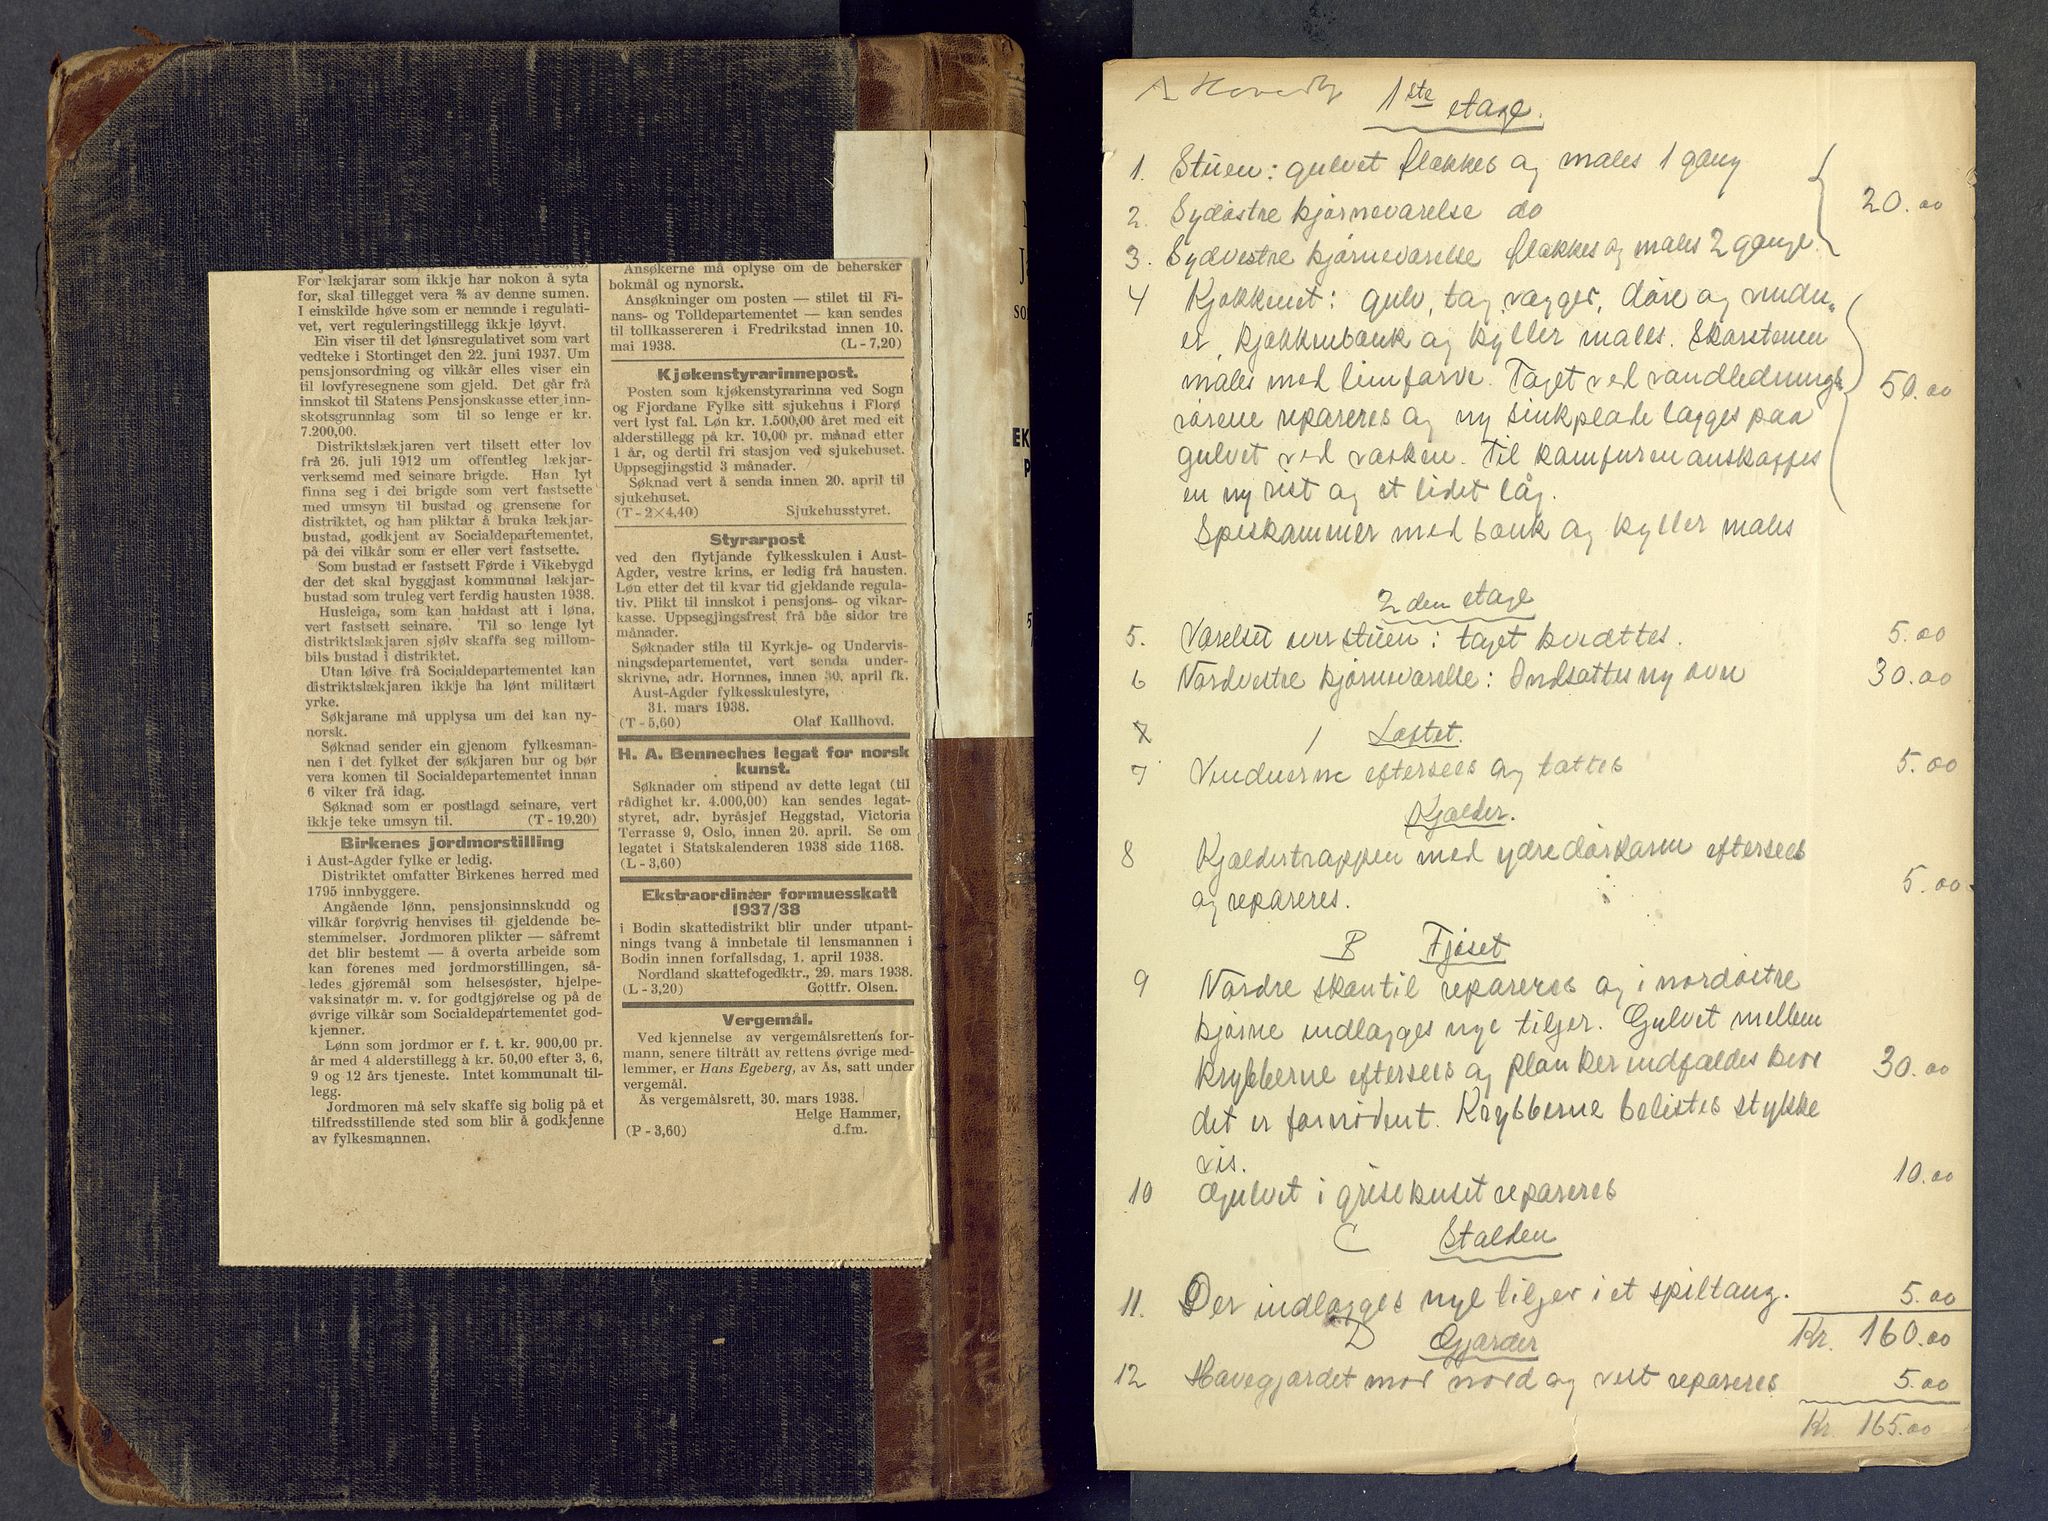 For lækjarar som ikkje har nokon å syta
for, skal tillegget vera ⅔ av denne sumen.
I einskilde høve som er nemnde i regulati-
vet, vert reguleringstillegg ikkje løyvt.
Ein viser til det lønsregulativet som vart
vedteke i Stortinget den 22. juni 1937. Um
pensjonsordning og vilkår elles viser ein
til lovfyresegnene som gjeld. Det går frå
innskot til Statens Pensjonskasse etter inn-
skotsgrunnlag som til so lenge er kr.
7.200,00.
Distriktslækjaren vert tilsett etter lov
frå 26. juli 1912 um offentleg lækjar-
verksemd med seinare brigde. Han lyt
finna seg i dei brigde som vert fastsette
med umsyn til bustad og grensene for
distriktet, og han pliktar å bruka lækjar-
bustad, godkjent av Socialdepartementet,
på dei vilkår som er eller vert fastsette.
Som bustad er fastsett Førde i Vikebygd
der det skal byggjast kommunal lækjar-
bustad som truleg vert ferdig hausten 1938.
Husleiga, som kan haldast att i løna,
vert fastsett seinare. Til so lenge lyt
distriktslækjaren sjølv skaffa seg millom-
bils bustad i distriktet.
Utan løive frå Socialdepartementet kan
distriktslækjaren ikkje ha lønt militært
yrke.
Søkjarane må upplysa um dei kan ny-
norsk.
Søknad sender ein gjenom fylkesman-
nen i det fylket der søkjaren bur og bør
vera komen til Socialdepartementet innan
6 viker frå idag.
Søknad som er postlagd seinare, vert
ikkje teke umsyn til. (T - 19.20)
Birkenes jordmorstilling
i Aust-Agder fylke er ledig.
Distriktet omfatter Birkenes herred med
1795 innbyggere.
Angående lønn, pensjonsinnskudd og
vilkår forøvrig henvises til gjeldende be-
stemmelser. Jordmoren plikter — såfremt
det blir bestemt — å overta arbeide som
kan forenes med jordmorstillingen, så-
ledes gjøremål som helsesøster, hjelpe-
vaksinatør m. v. for godtgjørelse og på de
øvrige vilkår som Socialdepartementet god-
kjenner.
Lønn som jordmor er f. t. kr. 900,00 pr.
år med 4 alderstillegg à kr. 50,00 efter 3, 6,
9 og 12 års tjeneste. Intet kommunalt til-
legg.
Jordmoren må selv skaffe sig bolig på et
tilfredsstillende sted som blir å godkjenne
av fylkesmannen.
Ansøkerne må oplyse om de behersker
bokmål og nynorsk.
Ansøkninger om posten — stilet til Fi-
nans- og Tolldepartementet — kan sendes
til tollkassereren i Fredrikstad innen 10.
mai 1938. (L - 7,20)
Kjøkenstyrarinnepost.
Posten som kjøkenstyrarinna ved Sogn
og Fjordane Fylke sitt sjukehus i Florø
vert lyst fal. Løn kr. 1.500,00 året med eit
alderstillegg på kr. 10,00 pr. månad etter
1 år, og dertil fri stasjon ved sjukehuset.
Uppsegjingstid 3 månader.
Søknad vert å senda innen 20. april til
sjukehuset.
(T - 2×4,40) Sjukehusstyret.
Styrarpost
ved den flytjande fylkesskulen i Aust-
Agder, vestre krins, er ledig frå hausten.
Løn etter det til kvar tid gjeldande regula-
tiv. Plikt til innskot i pensjons- og vikar-
kasse. Uppsegjingsfrest frå båe sidor tre
månader.
Søknader stila til Kyrkje- og Undervis-
ningsdepartementet, vert senda under-
skrivne, adr. Hornnes, innen 30. april fk.
Aust-Agder fylkesskulestyre,
31. mars 1938.
(T - 5,60) Olaf Kallhovd.
H. A. Benneches legat for norsk
kunst.
Søknader om stipend av dette legat (til
rådighet kr. 4.000,00) kan sendes legat-
styret, adr. byråsjef Heggstad, Victoria
Terrasse 9, Oslo, innen 20. april. Se om
legatet i Statskalenderen 1938 side 1168.
(L - 3,60)
Ekstraordinær formuesskatt
1937/38
i Bodin skattedistrikt blir under utpant-
nings tvang å innbetale til lensmannen i
Bodin innen forfallsdag, 1. april 1938.
Nordland skattefogedktr., 29. mars 1938.
(L - 3,20) Gottfr. Olsen.
Vergemål.
Ved kjennelse av vergemålsrettens for-
mann, senere tiltrått av rettens øvrige med-
lemmer, er Hans Egeberg, av Ås, satt under
vergemål.
Ås vergemålsrett, 30. mars 1938.
Helge Hammer,
(P - 3,60) d.fm.
A
1ste etage.
1. Stuen: gulvet flækkes og males 1 gang
2. Sydøstre hjørneværelse do
20.00
3. Sydvestre hjørneværelse flækkes og males 2 gange.
4 Kjøkkenet: gulv, tag, vægger, døre og vindu-
er, kjøkkenbænk og hyller males. Skorstenen
males med limfarve. Taget ved vandlednings-
50.00
rørene repareres og ny sinkplade lægges paa
gulvet ved vasken. Til komfuren anskaffes
en ny rist og et lidet låg.
Spiskammer med bænk og hyller males
2den etage
5. Værelset over stuen: taget hvidttes. 5.00
6 Nordvestre hjørneværelse: Indsættes ny ovn 30.00
Loftet.
7 Vinduerne eftersees og tættes 5.00
Kjælder.
8 Kjældertrappen med ydre dørkarm eftersees
og repareres. 5.00
B Fjøset
9 Nordre skantil repareres og i nordøstre
hjørne indlægges nye tiljer. Gulvet mellem
krybberne eftersees og planker indfældes hvor 30.00
det er fornødent. Krybberne belistes stykke
vis.
10 Gulvet i grisehuset repareres 10.00
C Stalden
11. Der indlægges nye tiljer i et spiltaug. 5.00
Kr. 160.00
D Gjærder
12 Havegjærdet mod nord og vest repareres 5.00
Kr. 165.00